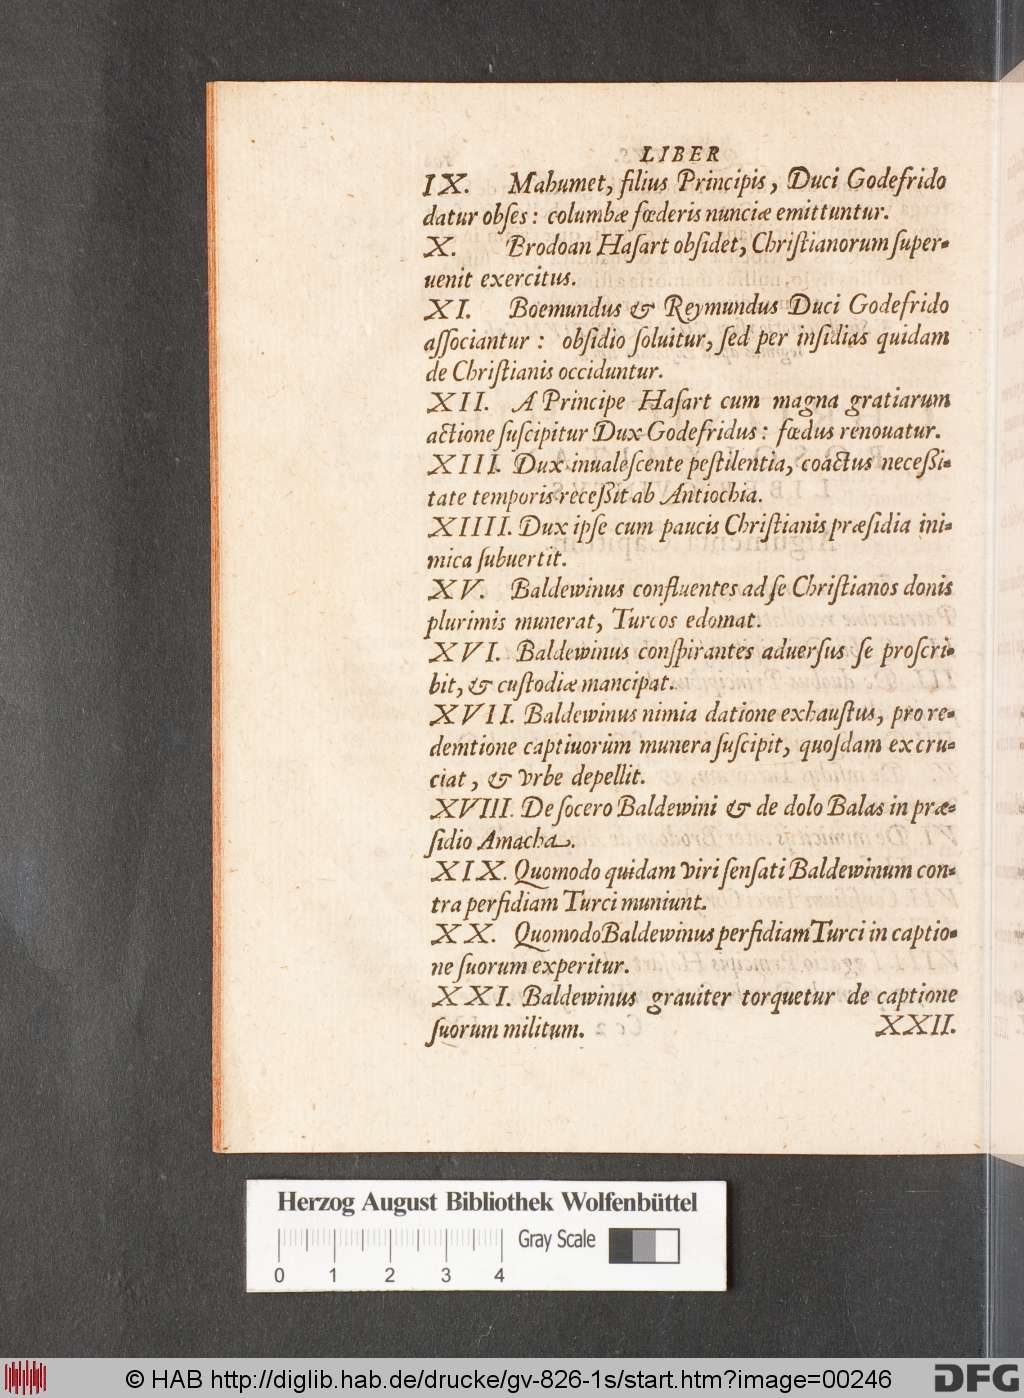 LIBER
IX. Mahumet, filius Principis, Duci Godefrido
datur obſes: columbæ fœderis nunciæ emittuntur.
X. Brodoan Haſart obſidet, Chriſtianorum ſuper-
uenit exercitus.
XI. Boemundus & Reymundus Duci Godefrido
aſſociantur: obſidio ſoluitur, ſed per inſidias quidam
de Chriſtianis occiduntur.
XII. A Principe Haſart cum magna gratiarum
actione ſuſcipitur Dux Godefridus: fœdus renouatur.
XIII. Dux inualeſcente peſtilentia, coactus neceßi-
tate temporis receßit ab Antiochia.
XIIII. Dux ipſe cum paucis Chriſtianis præſidia ini-
mica ſubuertit.
XV. Baldewinus confluentes ad ſe Chriſtianos donis
plurimis munerat, Turcos edomat.
XVI. Baldewinus conſpirantes aduerſus ſe proſcri-
bit, & cuſtodiæ mancipat.
XVII. Baldewinus nimia datione exhauſtus, pro re-
demtione captiuorum munera ſuſcipit, quoſdam excru-
ciat, & vrbe depellit.
XVIII. De ſocero Baldewini & de dolo Balas in præ-
ſidio Amacha.
XIX. Quomodo quidam viri ſenſati Baldewinum con-
tra perfidiam Turci muniunt.
XX. Quomodo Baldewinus perfidiam Turci in captio-
ne ſuorum experitur.
XXI. Baldewinus grauiter torquetur de captione
ſuorum militum.
XXII.
Herzog August Bibliothek Wolfenbüttel
Gray Scale
0 1 2 3 4
© HAB http://diglib.hab.de/drucke/gv-826-1s/start.htm?image=00246
DFG